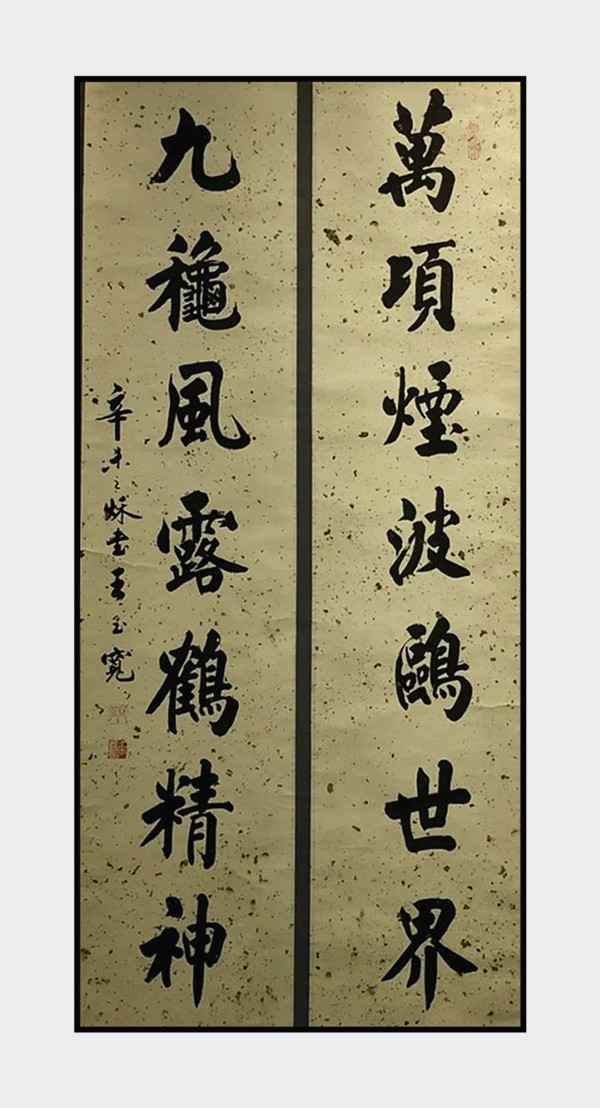 萬項煙波鷗世界
九龝風露鶴精神
辛未之秋書王玉寬